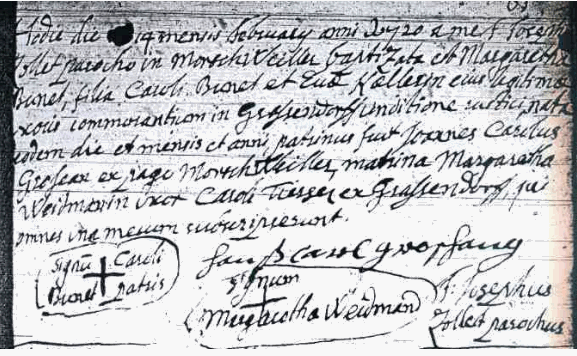 Hodie die 14 mensis february anni 1720 a me F. Josepho
Jollet parocho in Morschweiller baptizata est Margaretha
Bunet, filia Caroli Bunet et Evæ Kellerin eius legitimæ
uxoris commorantium in Grassendorff, conditione rustici, nata
eodem die et mensis et anni, patrinus fuit Joannes Carolus
Grosean ex pago Morschweiller, matrina Margaretha
Weitmanin uxor Caroli ex Grassendorff, qui
omnes una mecum subscripserunt.
signū Caroli
Bunet patris
Hanß Carol
signum
Margaretha Weidman
F. Josephus
Jollet parochus